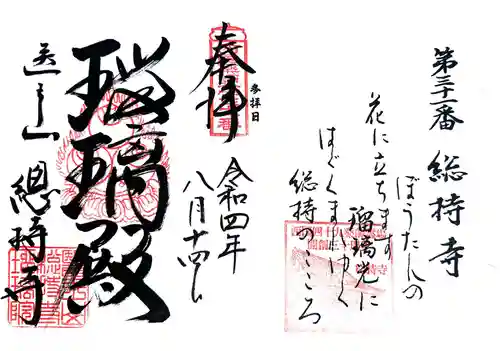 第三十一番 総持寺
ぼうたんの
花に立ちます
瑠璃光に
はぐくまれゆく
総持のこころ
奉拝
参拝日
令和四年
八月十四日
瑠璃殿
總持寺